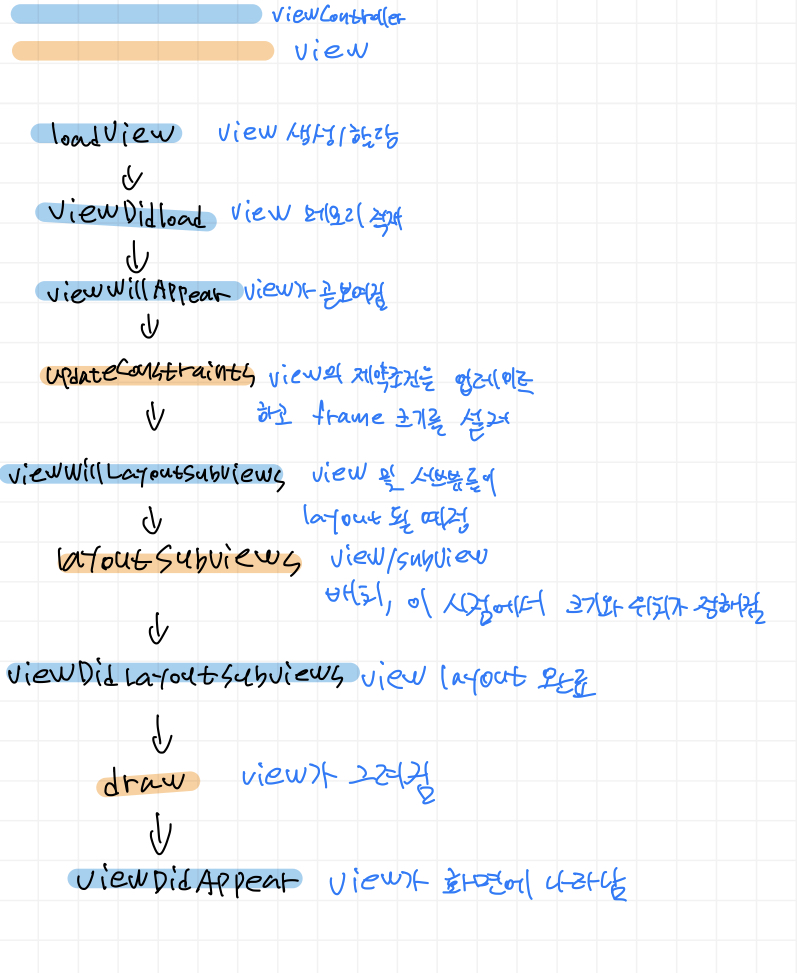 viewController
view
loadView view 생성/할당
viewDidload view 메모리 적재
viewWillAppear view가 곧보여짐
updateConstraints view의 제약조건을 업데이트
하고 frame 크기를 설정
viewWillLayoutSubviews view 및 서브뷰들이
layout 될 예정
layoutSubviews view/subview
배치, 이 시점에서 크기와 위치가 정해짐
viewDidLayoutSubviews view layout 완료
draw view가 그려짐
viewDidAppear view가 화면에 나타남